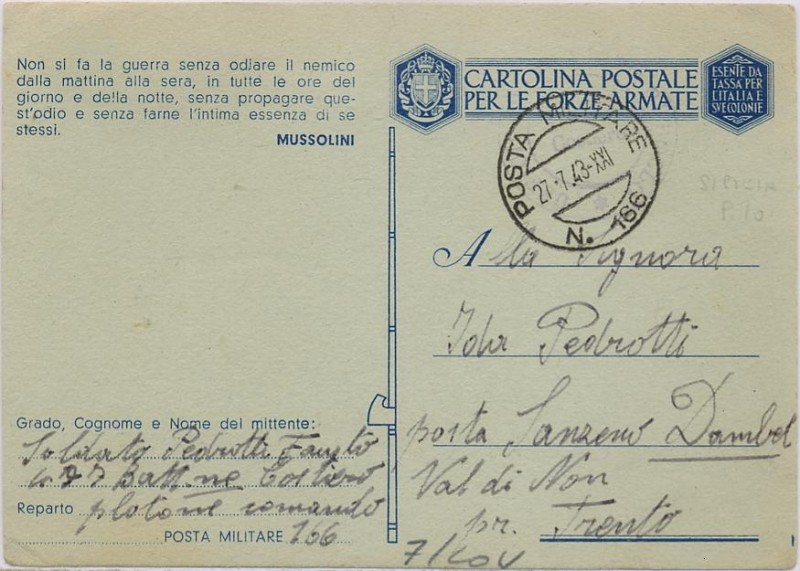 Non si fa la guerra senza odiare il nemico
dalla mattina alla sera, in tutte le ore del
giorno e della notte, senza propagare que-
st'odio e senza farne l'intima essenza di se
stessi.
MUSSOLINI
CARTOLINA POSTALE
PER LE FORZE ARMATE
ESENTE DA
TASSA PER
L'ITALIA E
SUE COLONIE
POSTA MILITARE
27.7.43-XXI
N. 166
SICILIA
Alla Signora
Ida Pedrotti
posta Sanzeno Dambel
Val di Non
pr. Trento
Grado, Cognome e Nome del mittente:
Soldato Pedrotti Fausto
Batt.ne Costiero
Reparto plotone comando
POSTA MILITARE 166